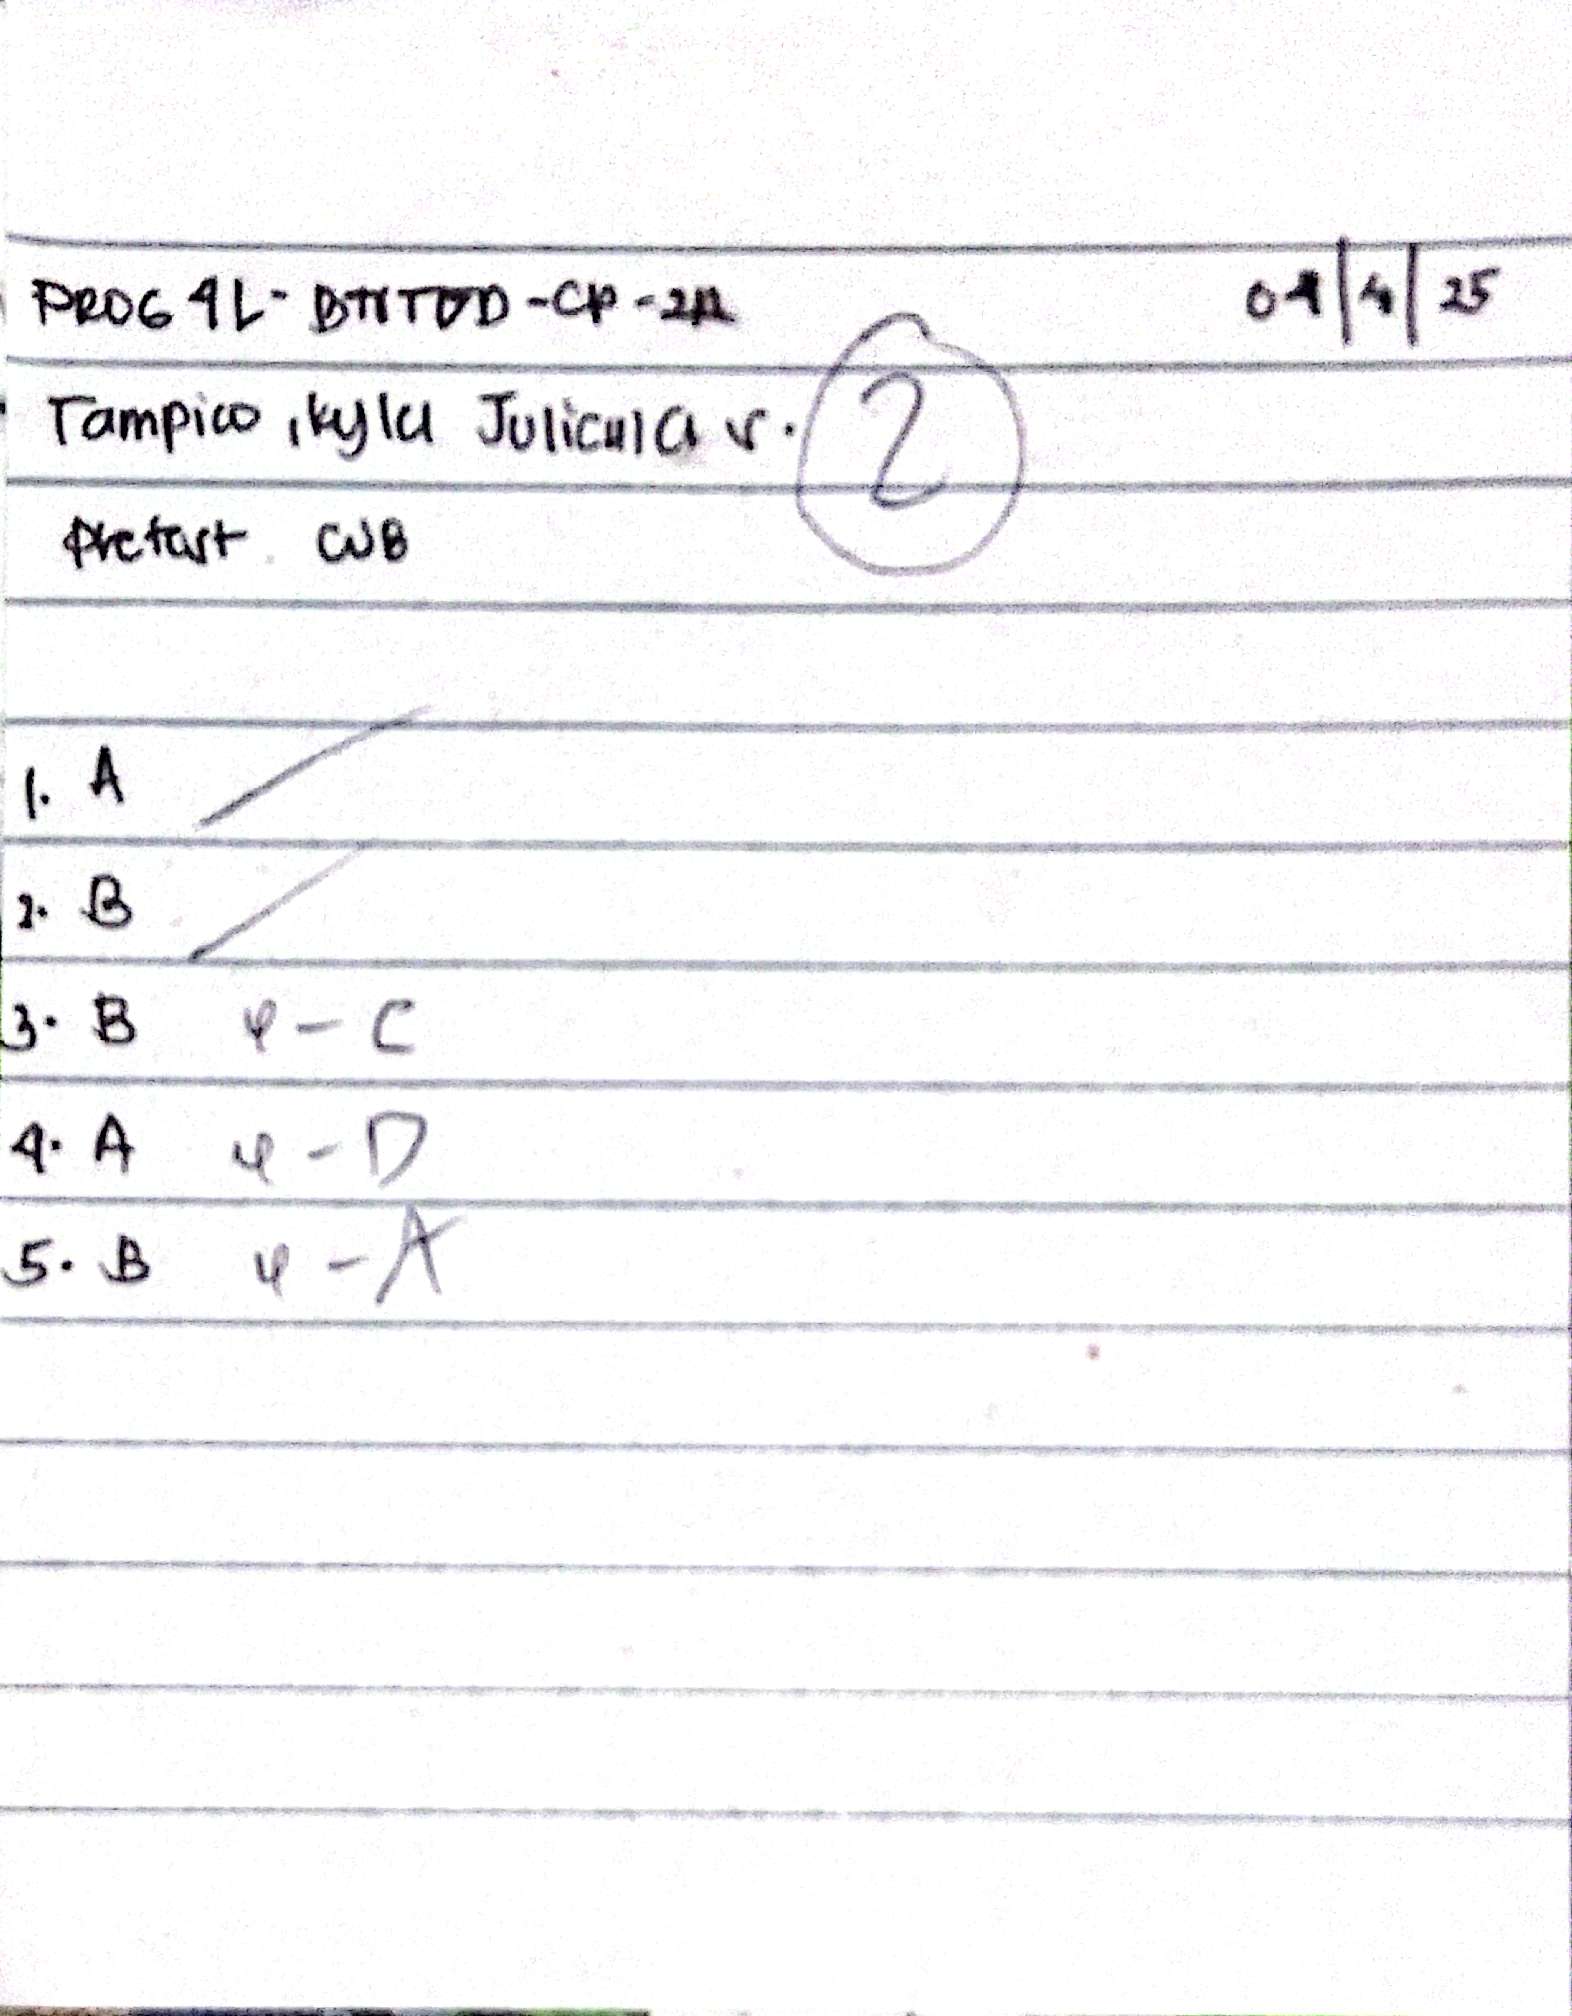 PROG 4L- BTVTED -CP -2A 04/4/25
Tampico, Kyla Juliana V.
2
Pretest CWB
1. A
2. B
3. B φ - C
4. A φ - D
5. B φ - A